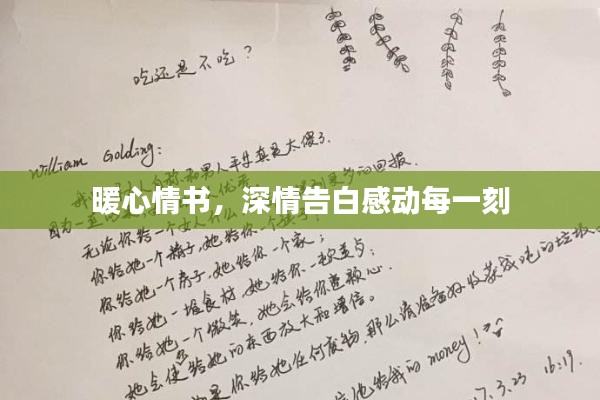 吃还是不吃？
William Golding:
人自称和男人平等真是太傻了.
暖心情书，深情告白感动每一刻
因为一直 的回报.
无论你给一个女人什么
你给她一个精子,她给你一个
你给她一个房子,她给你一个家;
你给她一堆食材,她给你一顿
你给她一个微笑,她会给你整颗心.
她会使给她的东西放大和增倍。
是你给她任何废物,那么请准备好收获成吨的垃圾
给我的money!
7.3.23 16:19.